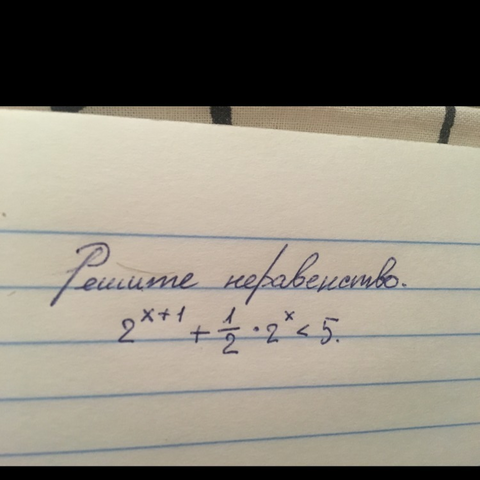 Решите неравенство.
2^{x+1} + \frac{1}{2} \cdot 2^x < 5.